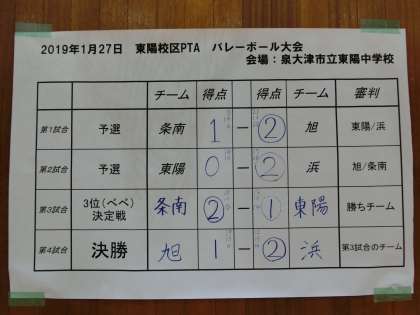 2019年1月27日 東陽校区PTA バレーボール大会
会場：泉大津市立東陽中学校
チーム 得点 得点 チーム 審判
第1試合 予選 条南 1 - 2 旭 東陽/浜
第2試合 予選 東陽 0 - 2 浜 旭/条南
第3試合 3位(べべ)決定戦 条南 2 - 1 東陽 勝ちチーム
第4試合 決勝 旭 1 - 2 浜 第3試合のチーム